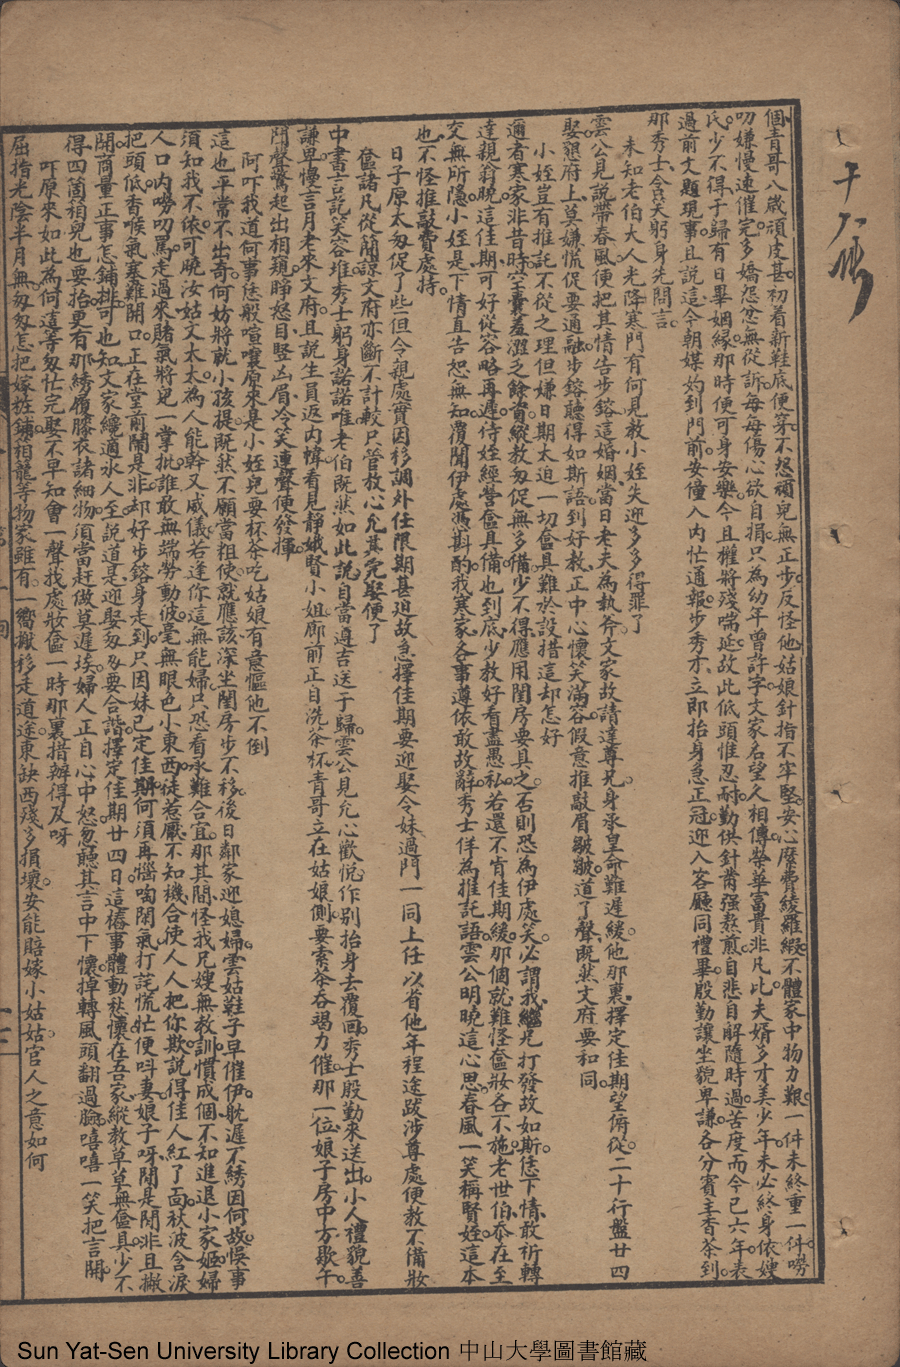 個青哥八歲頑皮甚初着新鞋底便穿不怒頑兒無正步反怪他姑娘針指不牢堅安心靡費綾羅緞不體家中物力艱一件未終重一件嘮
叨嫌慢連催完多嬌怨恨無從訴每每傷心欲自捐只為幼年曾許字文家名望久相傳榮華富貴非凡比夫婿多才美少年未必終身依嫂
氏少不得于歸有日畢姻緣那時便可身安樂今且權將殘喘延故此低頭惟忍耐勤供針黹强熬煎自悲自解隨時過苦度而今已六年表
過前文題現事且說這今朝媒妁到門前安僮入內忙通報步秀才立即抬身急正冠迎入客廳同禮畢殷勤讓坐貌卑謙各分賓主香茶到
那秀士含笑躬身先問言
未知老伯大人光降寒門有何見教小姪失迎多多得罪了
雲公見說帶春風便把其情告步鎔這婚姻當日老夫為執斧文家故請達尊兄身承皇命難遲緩他那裏擇定佳期望俯從二十行盤廿四
娶懇府上莫嫌慌促要通融步鎔聽得如斯語到好教正中心懷笑滿容假意推敲眉皺皺道了聲既然文府要和同
小姪豈有推託不從之理但嫌日期太迫一切奩具難於設措這却怎好
邇者寒家非昔時空囊羞澀之餘資縱教匆促無多備少不得應用閨房要具之否則恐為伊處笑必謂我繼兄打發故如斯恁下情敢祈轉
達親翁曉這佳期可好從容略再遲待姪經營奩具備也到底少教好看盡愚私若還不肯佳期緩那個就難怪奩妝各不施老世伯忝在至
交無所隱小姪是下情直告恕無知覆聞伊處憑斟酌我寒家各事遵依敢故辭秀士佯為推託語雲公明曉這心思春風一笑稱賢姪這本
也不怪推敲費處持
日子原太匆促了些但令親處實因移調外任限期甚迫故急擇佳期要迎娶令妹過門一同上任以省他年程途跋涉尊處便教不備妝
奩諸凡從簡諒文府亦斷不計較只管放心允其完娶便了
中書言説笑容堆秀士躬身諾諾唯老伯既然如此說自當遵吉送于歸雲公見允心歡悅作別抬身去覆回秀士殷勤來送出小人禮貌善
謙卑慢言月老來文府且說生員返內幃看見靜娥賢小姐廊前正自洗茶杯青哥立在姑娘側要索茶吞竭力催那一位娘子房中方歇午
鬧聲驚起出相窺睜怒目竪凶眉冷笑連聲便發揮
阿吓我道何事恁般喧嚷原來是小姪兒要杯茶吃姑娘有意慪他不倒
這也平常不出奇何妨將就小孩提既然不願當粗使就應該深坐閨房步不移後日鄰家迎媳婦雲姑鞋子早催伊躭遲不綉因何故悞事
須知我不依可曉汝姑文太太為人能幹又威儀若逢你這無能婦只恐看承難合宜那其間怪我兄嫂無教訓慣成個不知進退小家姬婦
人口內嘮叨罵走過來賭氣將兒一掌批誰敢無端勞動彼毫無眼色小東西徒惹厭不知機合使人人把你欺說得佳人紅了面秋波含淚
把頭低香喉氣塞難開口正在堂前鬧是非却好步鎔身走到只因妹已定佳期何須再惱啕閒氣打諢慌忙便呌妻娘子呀閒是閒非且撇
開商量正事怎鋪排可也知文家纔適氷人至説道是迎娶匆匆要合諧擇定佳期廿四日這樁事體動愁懷在吾家縱教草草無奩具少不
得四箇箱兒也要抬更有那綉履膝衣諸細物須當赶做莫遲挨婦人正自心中怒忽聽其言中下懷掉轉風頭翻過臉嘻嘻一笑把言開
吓原來如此為何這等匆忙完娶不早知會一聲找處妝奩一時那裏措辦得及呀
屈指光陰半月無匆匆怎把嫁粧鋪箱籠等物家雖有一嚮搬移走道途東缺西殘多損壞安能賠嫁小姑姑官人之意如何
Sun Yat-Sen University Library Collection 中山大學圖書館藏